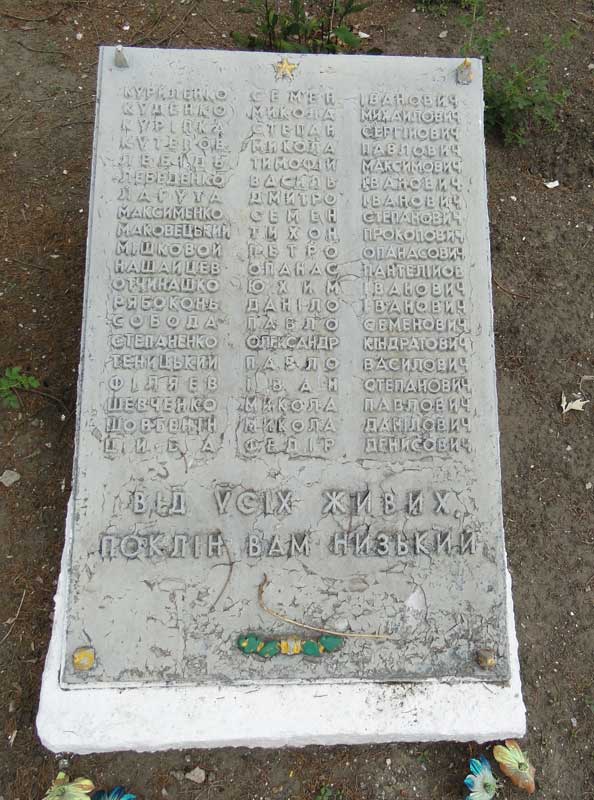 КУРИЛЕНКО СЕМЕН ІВАНОВИЧ
КУЦЕНКО МИКОЛА МИХАЙЛОВИЧ
КУРІПКА СТЕПАН СЕРГІЙОВИЧ
КУТЕПОВ МИКОЛА ПАВЛОВИЧ
ЛЕБІДЬ ТИМОФІЙ МАКСИМОВИЧ
ЛЕБЕДЕНКО ВАСИЛЬ ІВАНОВИЧ
ЛАГУТА ДМИТРО ІВАНОВИЧ
МАКСИМЕНКО СЕМЕН СТЕПАНОВИЧ
МАКОВЕЦЬКИЙ ТИХОН ПРОКОПОВИЧ
МІШКОВОЙ ПЕТРО ОПАНАСОВИЧ
НАШАЙЦЕВ ОПАНАС ПАНТЕЛІЙОВ
ОТЧИНАШКО ЮХИМ ІВАНОВИЧ
РЯБОКОНЬ ДАНІЛО ІВАНОВИЧ
СОБОДА ПАВЛО СЕМЕНОВИЧ
СТЕПАНЕНКО ОЛЕКСАНДР КІНДРАТОВИЧ
ТЕНИЦЬКИЙ ПАВЛО ВАСИЛОВИЧ
ФІЛЯЕВ ІВАН СТЕПАНОВИЧ
ШЕВЧЕНКО МИКОЛА ПАВЛОВИЧ
МИКОЛА ДАНІЛОВИЧ
ФЕДІР ДЕНИСОВИЧ
ВІД УСІХ ЖИВИХ
ПОКЛІН ВАМ НИЗЬКИЙ